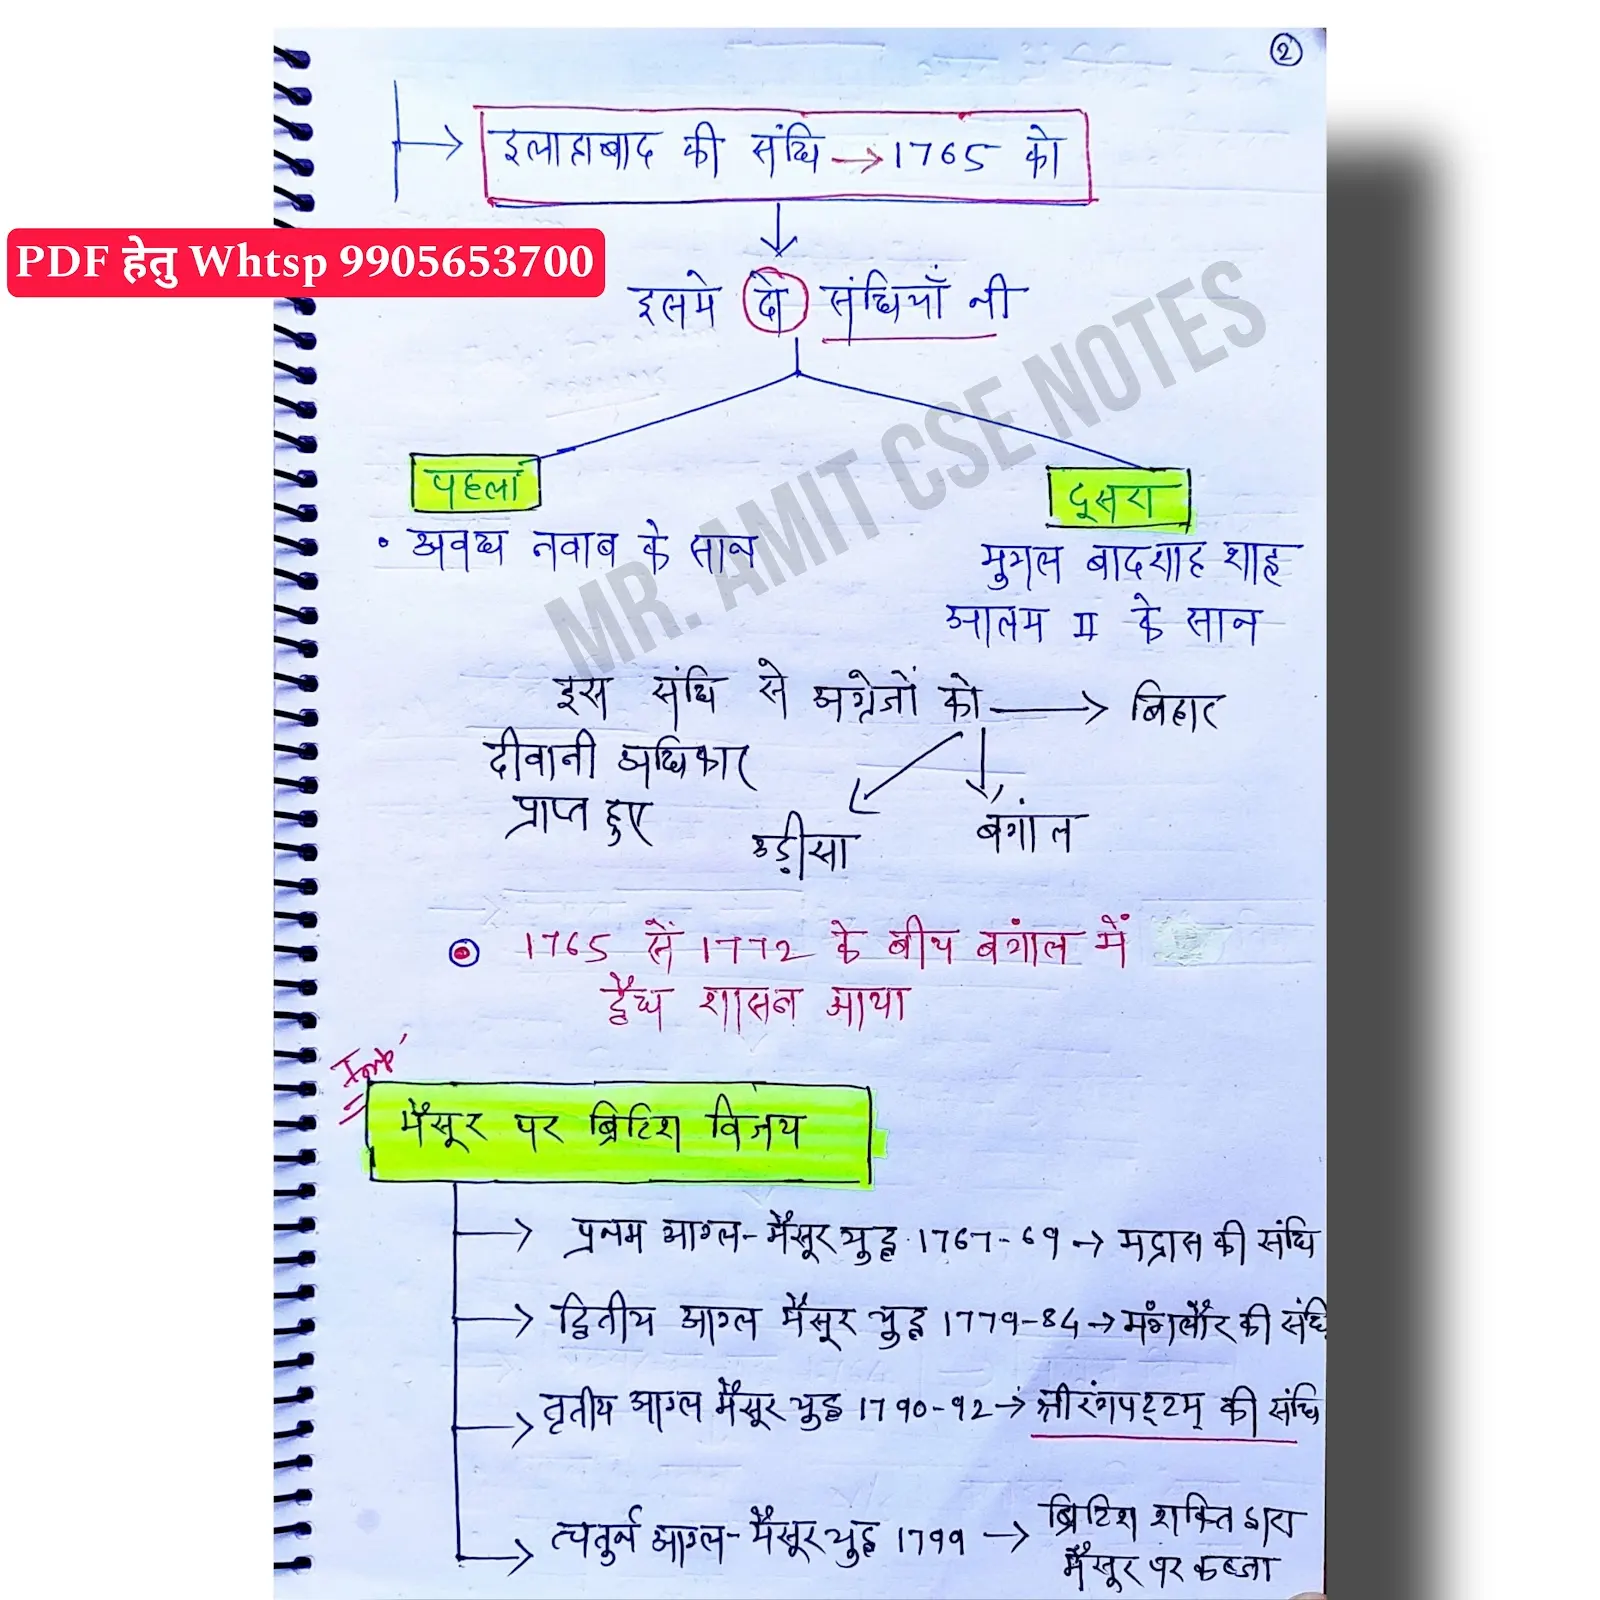 2
इलाहाबाद की संधि → 1765 को
PDF हेतु Whtsp 9905653700
इसमे दो संधियाँ थी
पहला
दूसरा
• अवध नवाब के साथ
मुगल बादशाह शाह
आलम II के साथ
MR. AMIT CSE NOTES
इस संधि से अग्रेजों को → बिहार
दीवानी अधिकार
प्राप्त हुए
उड़ीसा
बंगाल
1765 से 1772 के बीच बंगाल में
द्वैध शासन आया
Imp
मैसूर पर ब्रिटिश विजय
→ प्रथम आग्ल-मैसूर युद्ध 1767-69 → मद्रास की संधि
→ द्वितीय आग्ल मैसूर युद्ध 1779-84 → मंगलौर की संधि
→ तृतीय आग्ल मैसूर युद्ध 1790-92 → श्रीरंगपट्टम् की संधि
→ चतुर्थ आग्ल-मैसूर युद्ध 1799 → ब्रिटिश शक्ति द्वारा
मैसूर पर कब्जा